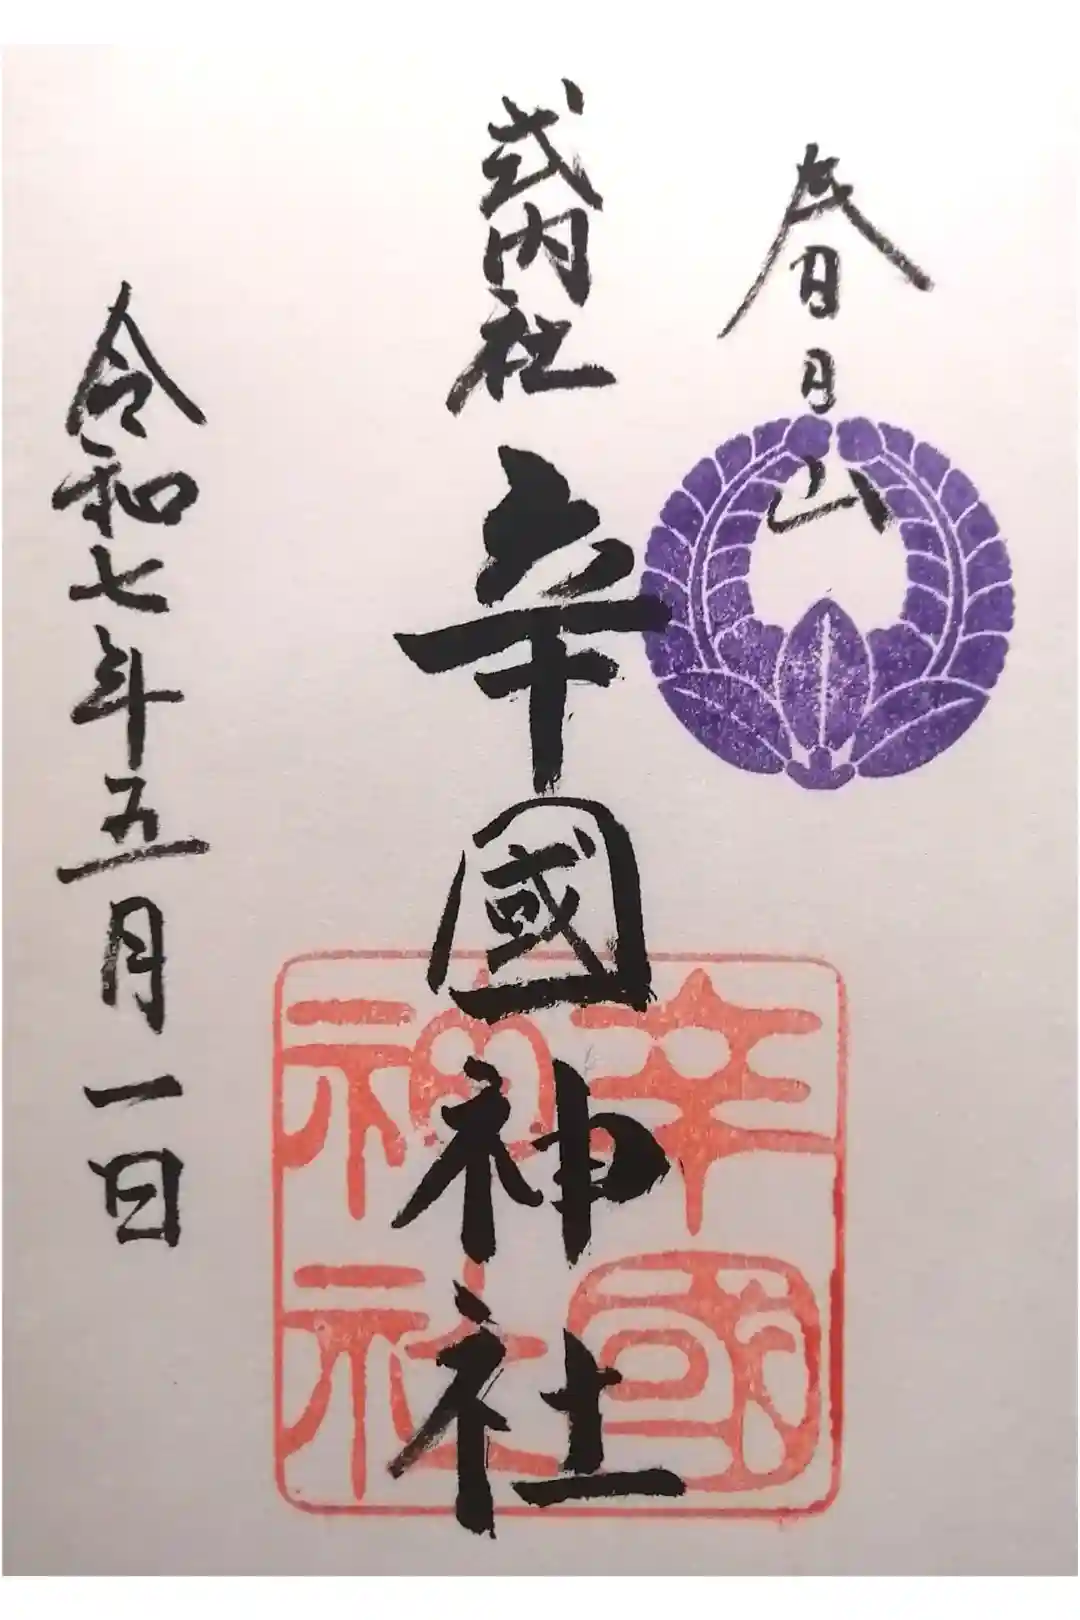 春日山
式内社 辛國神社
令和七年五月一日
辛國神社